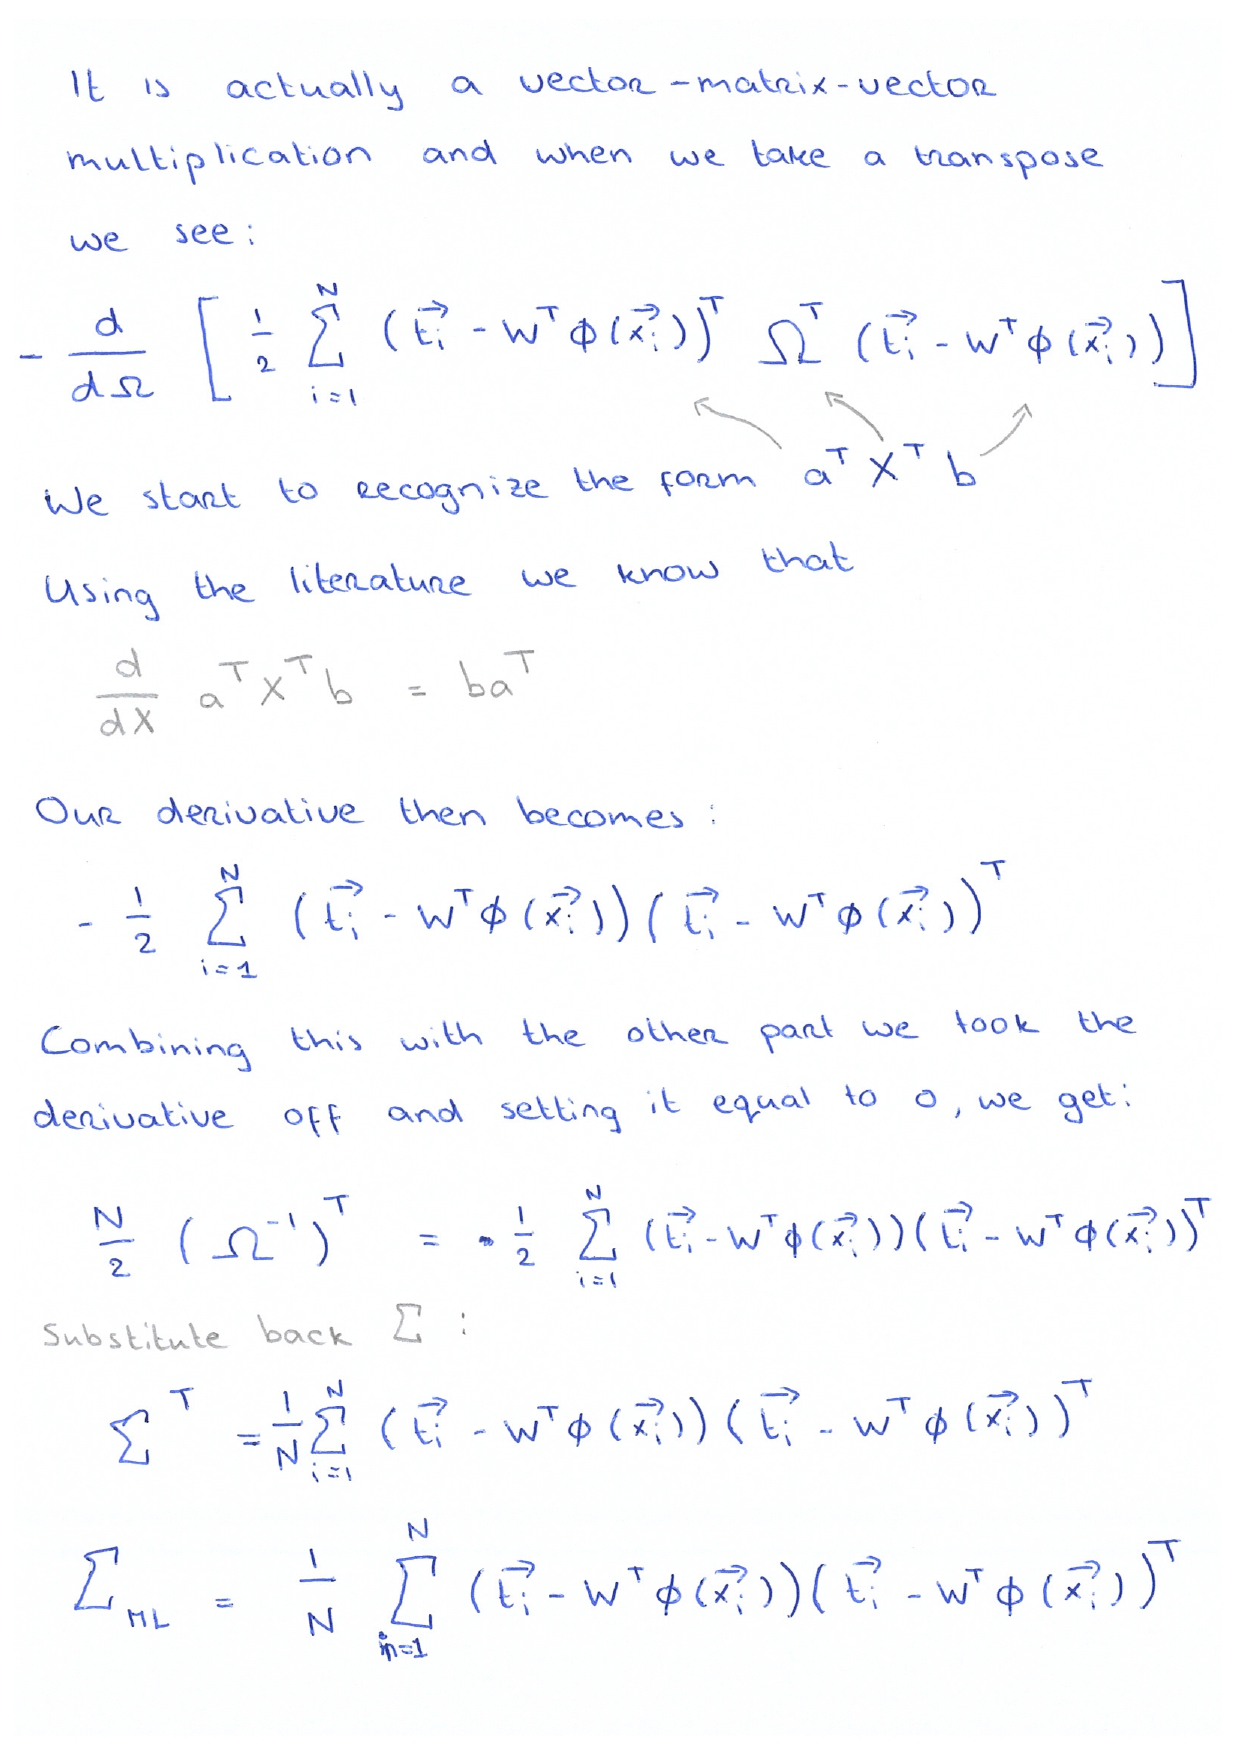 It is actually a vector-matrix-vector
multiplication and when we take a transpose
we see:
- d/dΩ [ 1/2 Σ_{i=1}^{N} (t⃗_i - W^T φ(x⃗_i))^T Ω^T (t⃗_i - W^T φ(x⃗_i)) ]
We start to recognize the form a^T X^T b
Using the literature we know that
d/dX a^T X^T b = ba^T
Our derivative then becomes:
- 1/2 Σ_{i=1}^{N} (t⃗_i - W^T φ(x⃗_i))(t⃗_i - W^T φ(x⃗_i))^T
Combining this with the other part we took the
derivative off and setting it equal to 0, we get:
N/2 (Ω^{-1})^T = - 1/2 Σ_{i=1}^{N} (t⃗_i - W^T φ(x⃗_i))(t⃗_i - W^T φ(x⃗_i))^T
Substitute back Σ:
Σ^T = 1/N Σ_{i=1}^{N} (t⃗_i - W^T φ(x⃗_i))(t⃗_i - W^T φ(x⃗_i))^T
Σ_{ML} = 1/N Σ_{i=1}^{N} (t⃗_i - W^T φ(x⃗_i))(t⃗_i - W^T φ(x⃗_i))^T